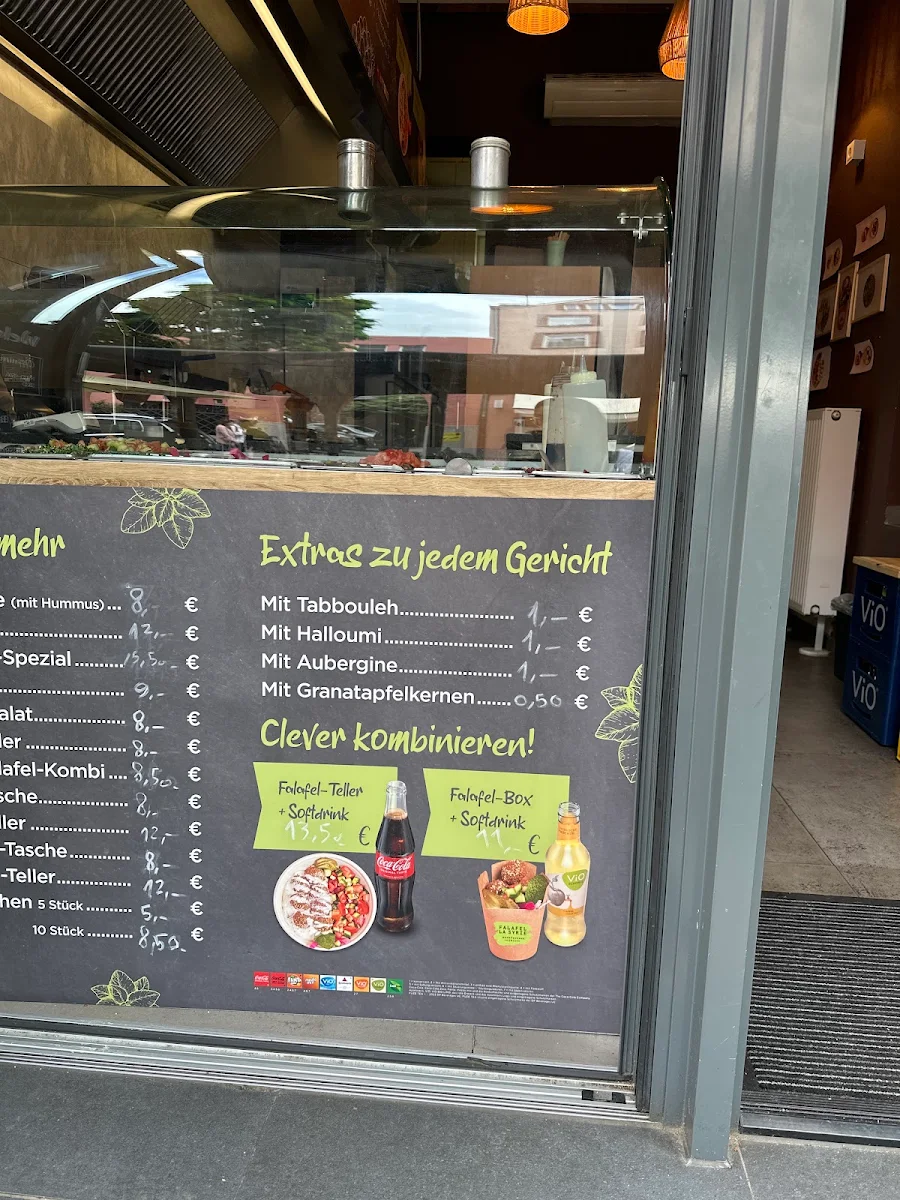 mehr
e (mit Hummus)... 8,- €
12,- €
-Spezial 15,50 €
9,- €
alat 8,- €
ler 8,- €
lafel-Kombi 8,50 €
sche 8,- €
ller 12,- €
-Tasche 8,- €
-Teller 12,- €
hen 5 Stück 5,- €
10 Stück 8,50 €
Extras zu jedem Gericht
Mit Tabbouleh 1,- €
Mit Halloumi 1,- €
Mit Aubergine 1,- €
Mit Granatapfelkernen 0,50 €
Clever kombinieren!
Falafel-Teller
+ Softdrink
13,50 €
Falafel-Box
+ Softdrink
11,- €
Coca-Cola
ViO
FALAFEL
LA SYRIE
ViO
ViO